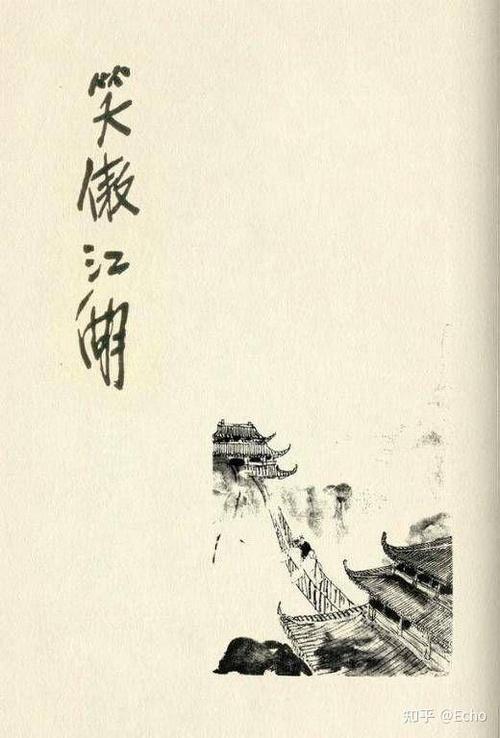 笑傲江湖
知乎 @Echo